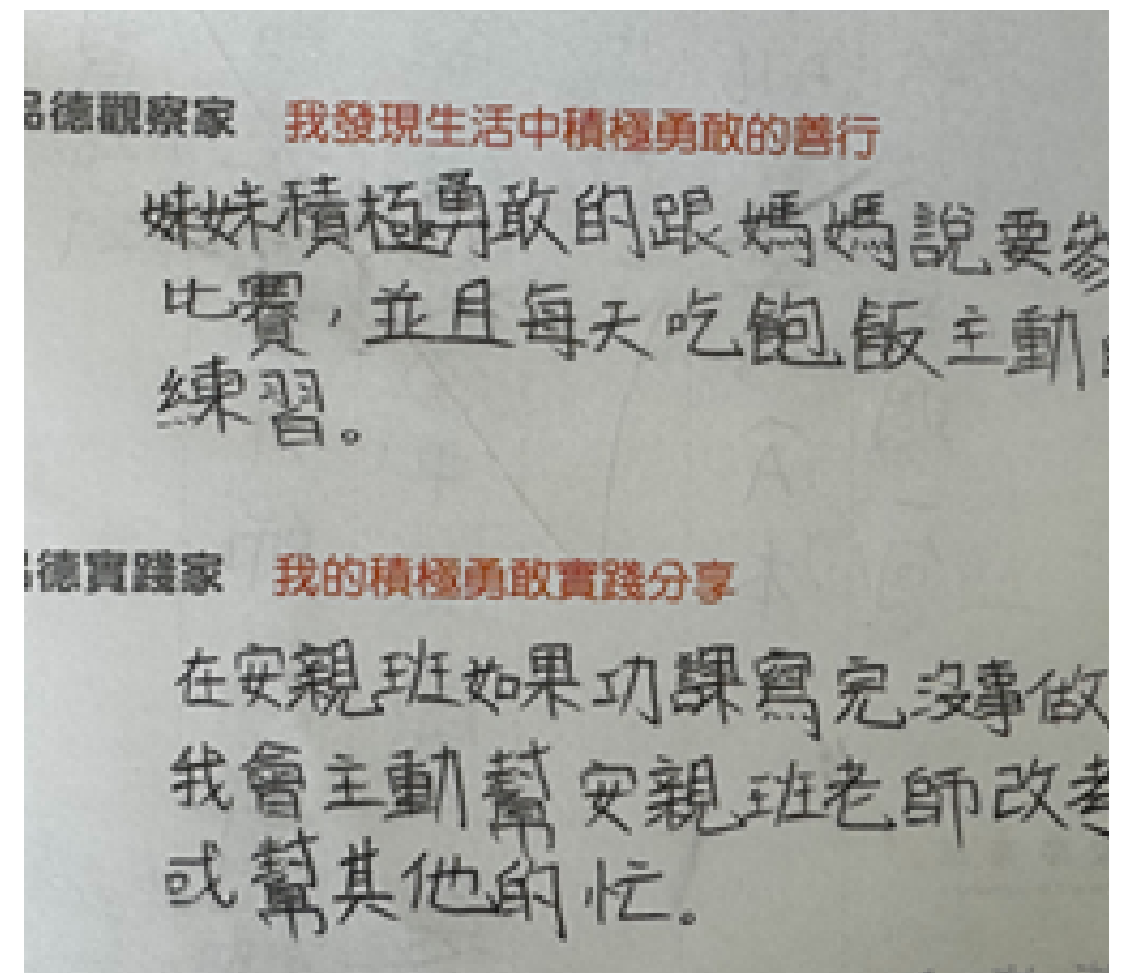 德觀察家 我發現生活中積極勇敢的善行
妹妹積極勇敢的跟媽媽說要參
比賽，並且每天吃飽飯主動
練習。
德實踐家 我的積極勇敢實踐分享
在安親班如果功課寫完沒事做
我會主動幫安親班老師改考
或幫其他的忙。